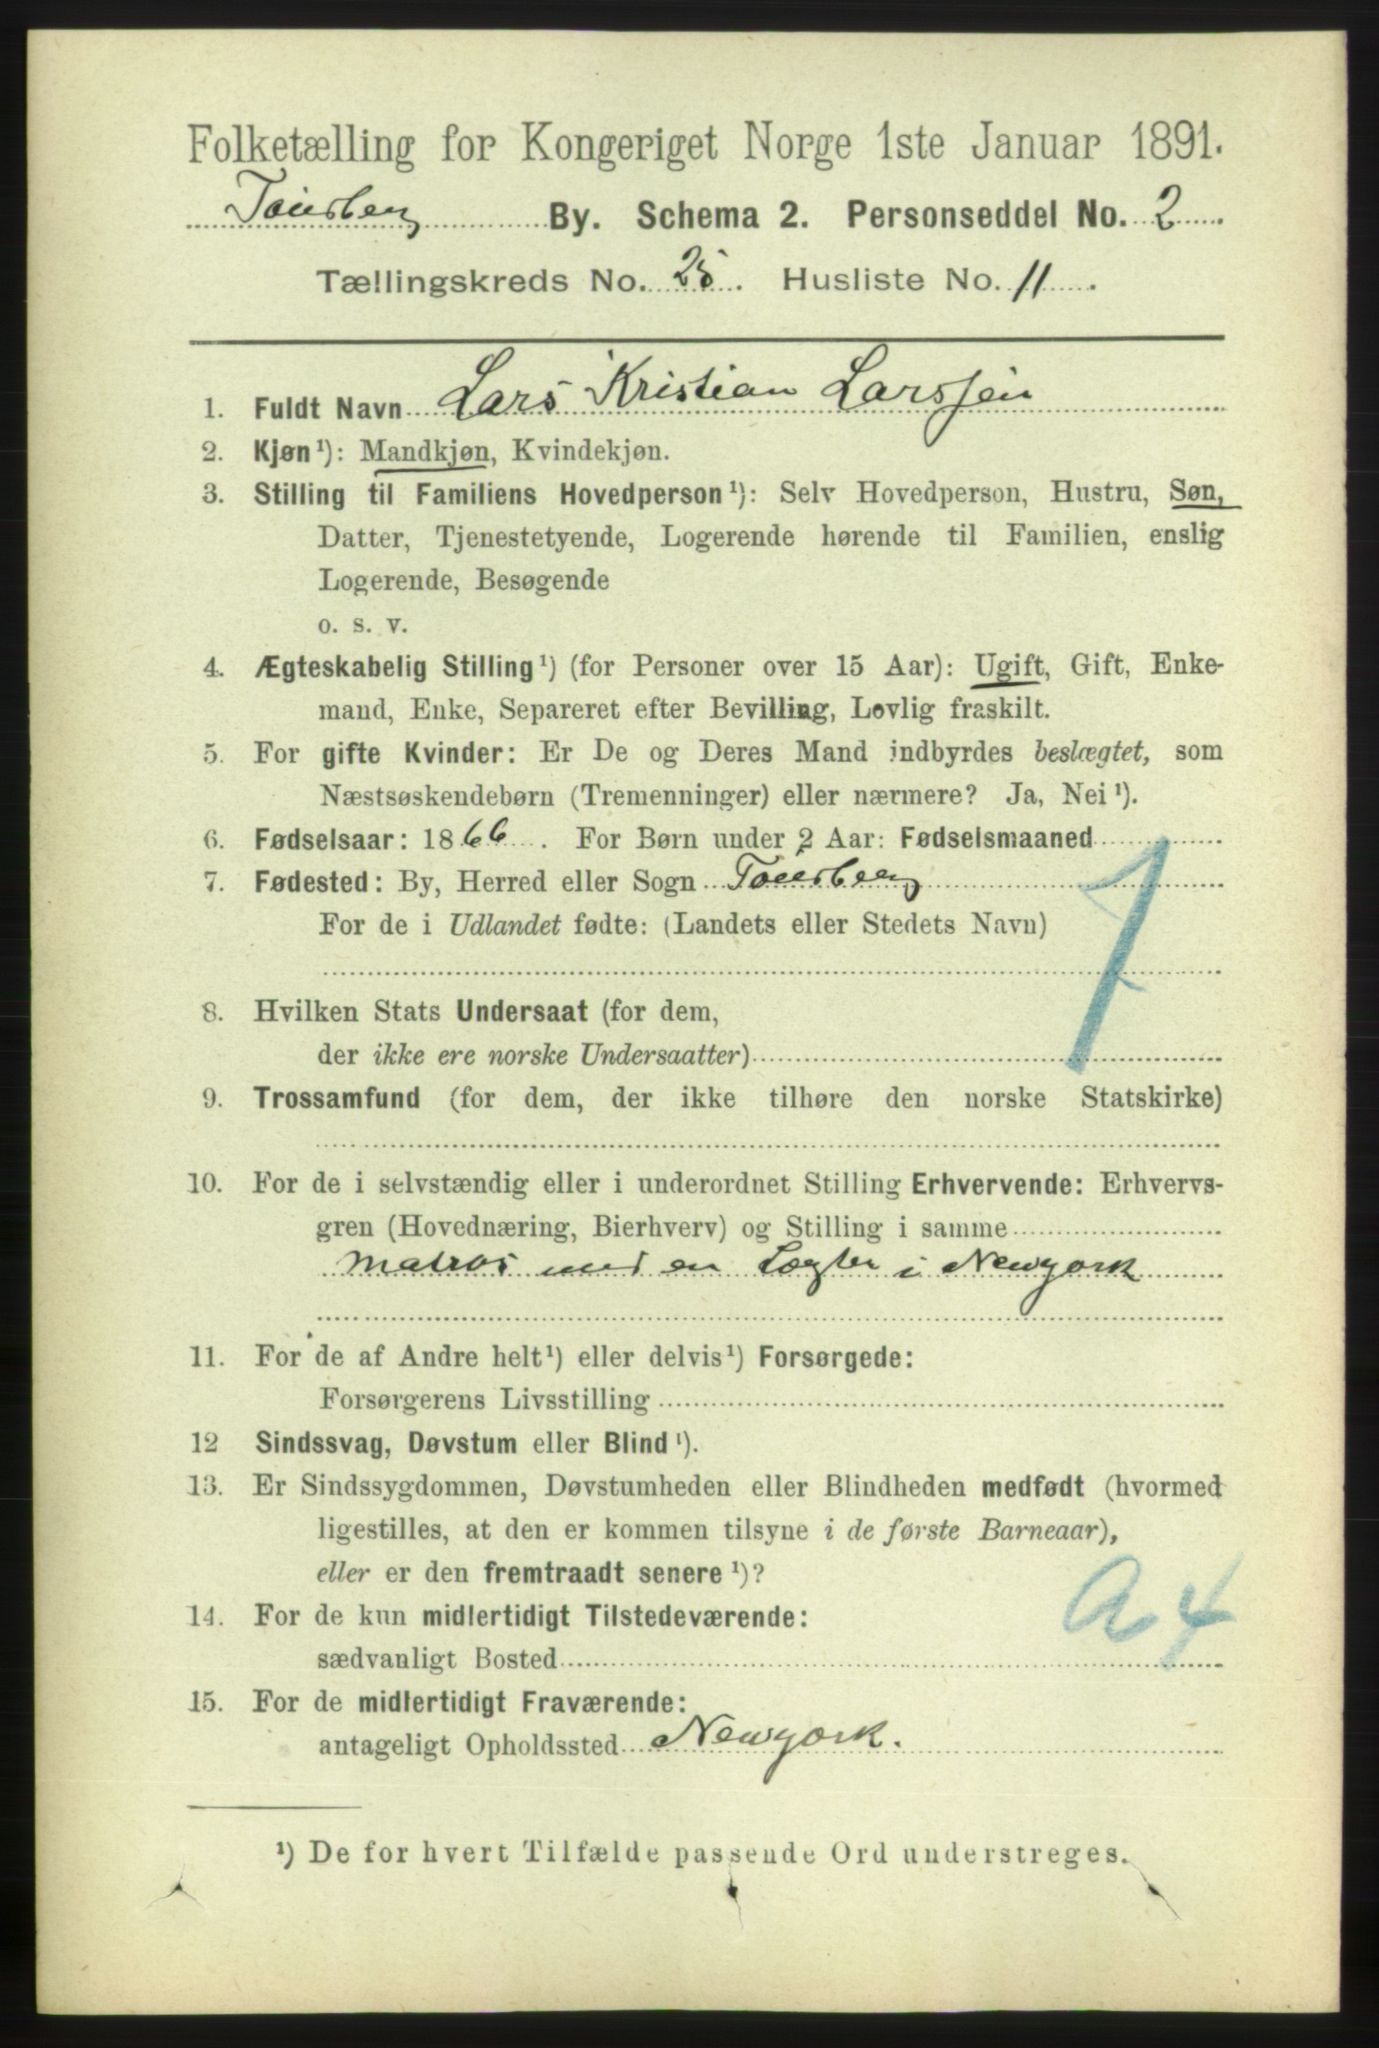 Folketælling for Kongeriget Norge 1ste Januar 1891.
Tønsberg By. Schema 2. Personseddel No. 2
Tællingskreds No. 25. Husliste No. 11.
1. Fuldt Navn Lars Kristian Larssen
2. Kjøn ¹): Mandkjøn, Kvindekjøn.
3. Stilling til Familiens Hovedperson ¹): Selv Hovedperson, Hustru, Søn,
Datter, Tjenestetyende, Logerende hørende til Familien, enslig
Logerende, Besøgende
o. s. v.
4. Ægteskabelig Stilling ¹) (for Personer over 15 Aar): Ugift, Gift, Enke-
mand, Enke, Separeret efter Bevilling, Lovlig fraskilt.
5. For gifte Kvinder: Er De og Deres Mand indbyrdes beslægtet, som
Næstsøskendebørn (Tremenninger) eller nærmere? Ja, Nei ¹).
6. Fødselsaar: 1866. For Børn under 2 Aar: Fødselsmaaned
7. Fødested: By, Herred eller Sogn Tønsberg
For de i Udlandet fødte: (Landets eller Stedets Navn)
8. Hvilken Stats Undersaat (for dem,
der ikke ere norske Undersaatter)
9. Trossamfund (for dem, der ikke tilhøre den norske Statskirke)
10. For de i selvstændig eller i underordnet Stilling Erhvervende: Erhvervs-
gren (Hovednæring, Bierhverv) og Stilling i samme
Matros med en Lægter i Newyork
11. For de af Andre helt ¹) eller delvis ¹) Forsørgede:
Forsørgerens Livsstilling
12 Sindssvag, Døvstum eller Blind ¹).
13. Er Sindssygdommen, Døvstumheden eller Blindheden medfødt (hvormed
ligestilles, at den er kommen tilsyne i de første Barneaar),
eller er den fremtraadt senere ¹)?
A 4
14. For de kun midlertidigt Tilstedeværende:
sædvanligt Bosted
15. For de midlertidigt Fraværende:
antageligt Opholdssted Newyork.
¹) De for hvert Tilfælde passende Ord understreges.